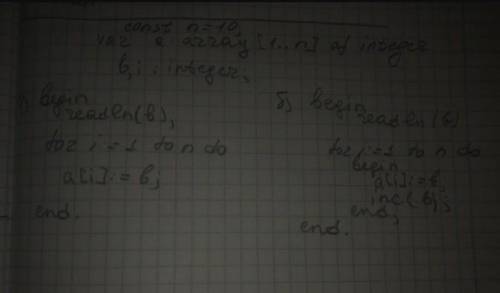 const n=10;
var a array [1..n] of integer
b,i : integer;
а) begin
readln(b);
for i=1 to n do
a[i]:= b;
end.
б) begin
readln(b)
for i=1 to n do
begin
a[i]:=b;
inc(b);
end;
end.